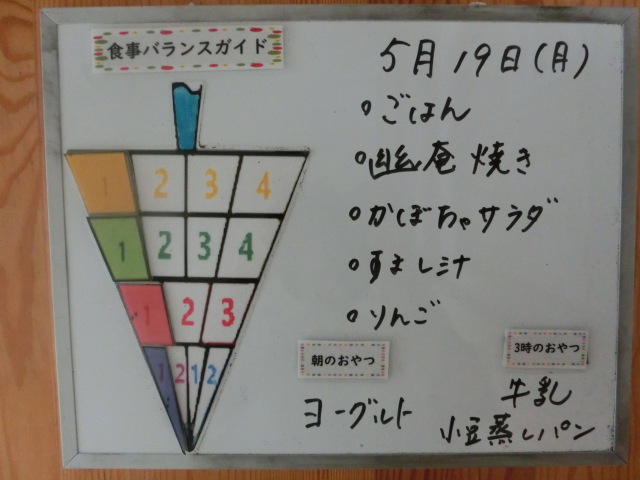 食事バランスガイド
5月19日(月)
ごはん
幽庵焼き
かぼちゃサラダ
すまし汁
りんご
1 2 3 4
1 2 3 4
1 2 3
1 2 1 2
朝のおやつ
ヨーグルト
3時のおやつ
牛乳
小豆蒸しパン